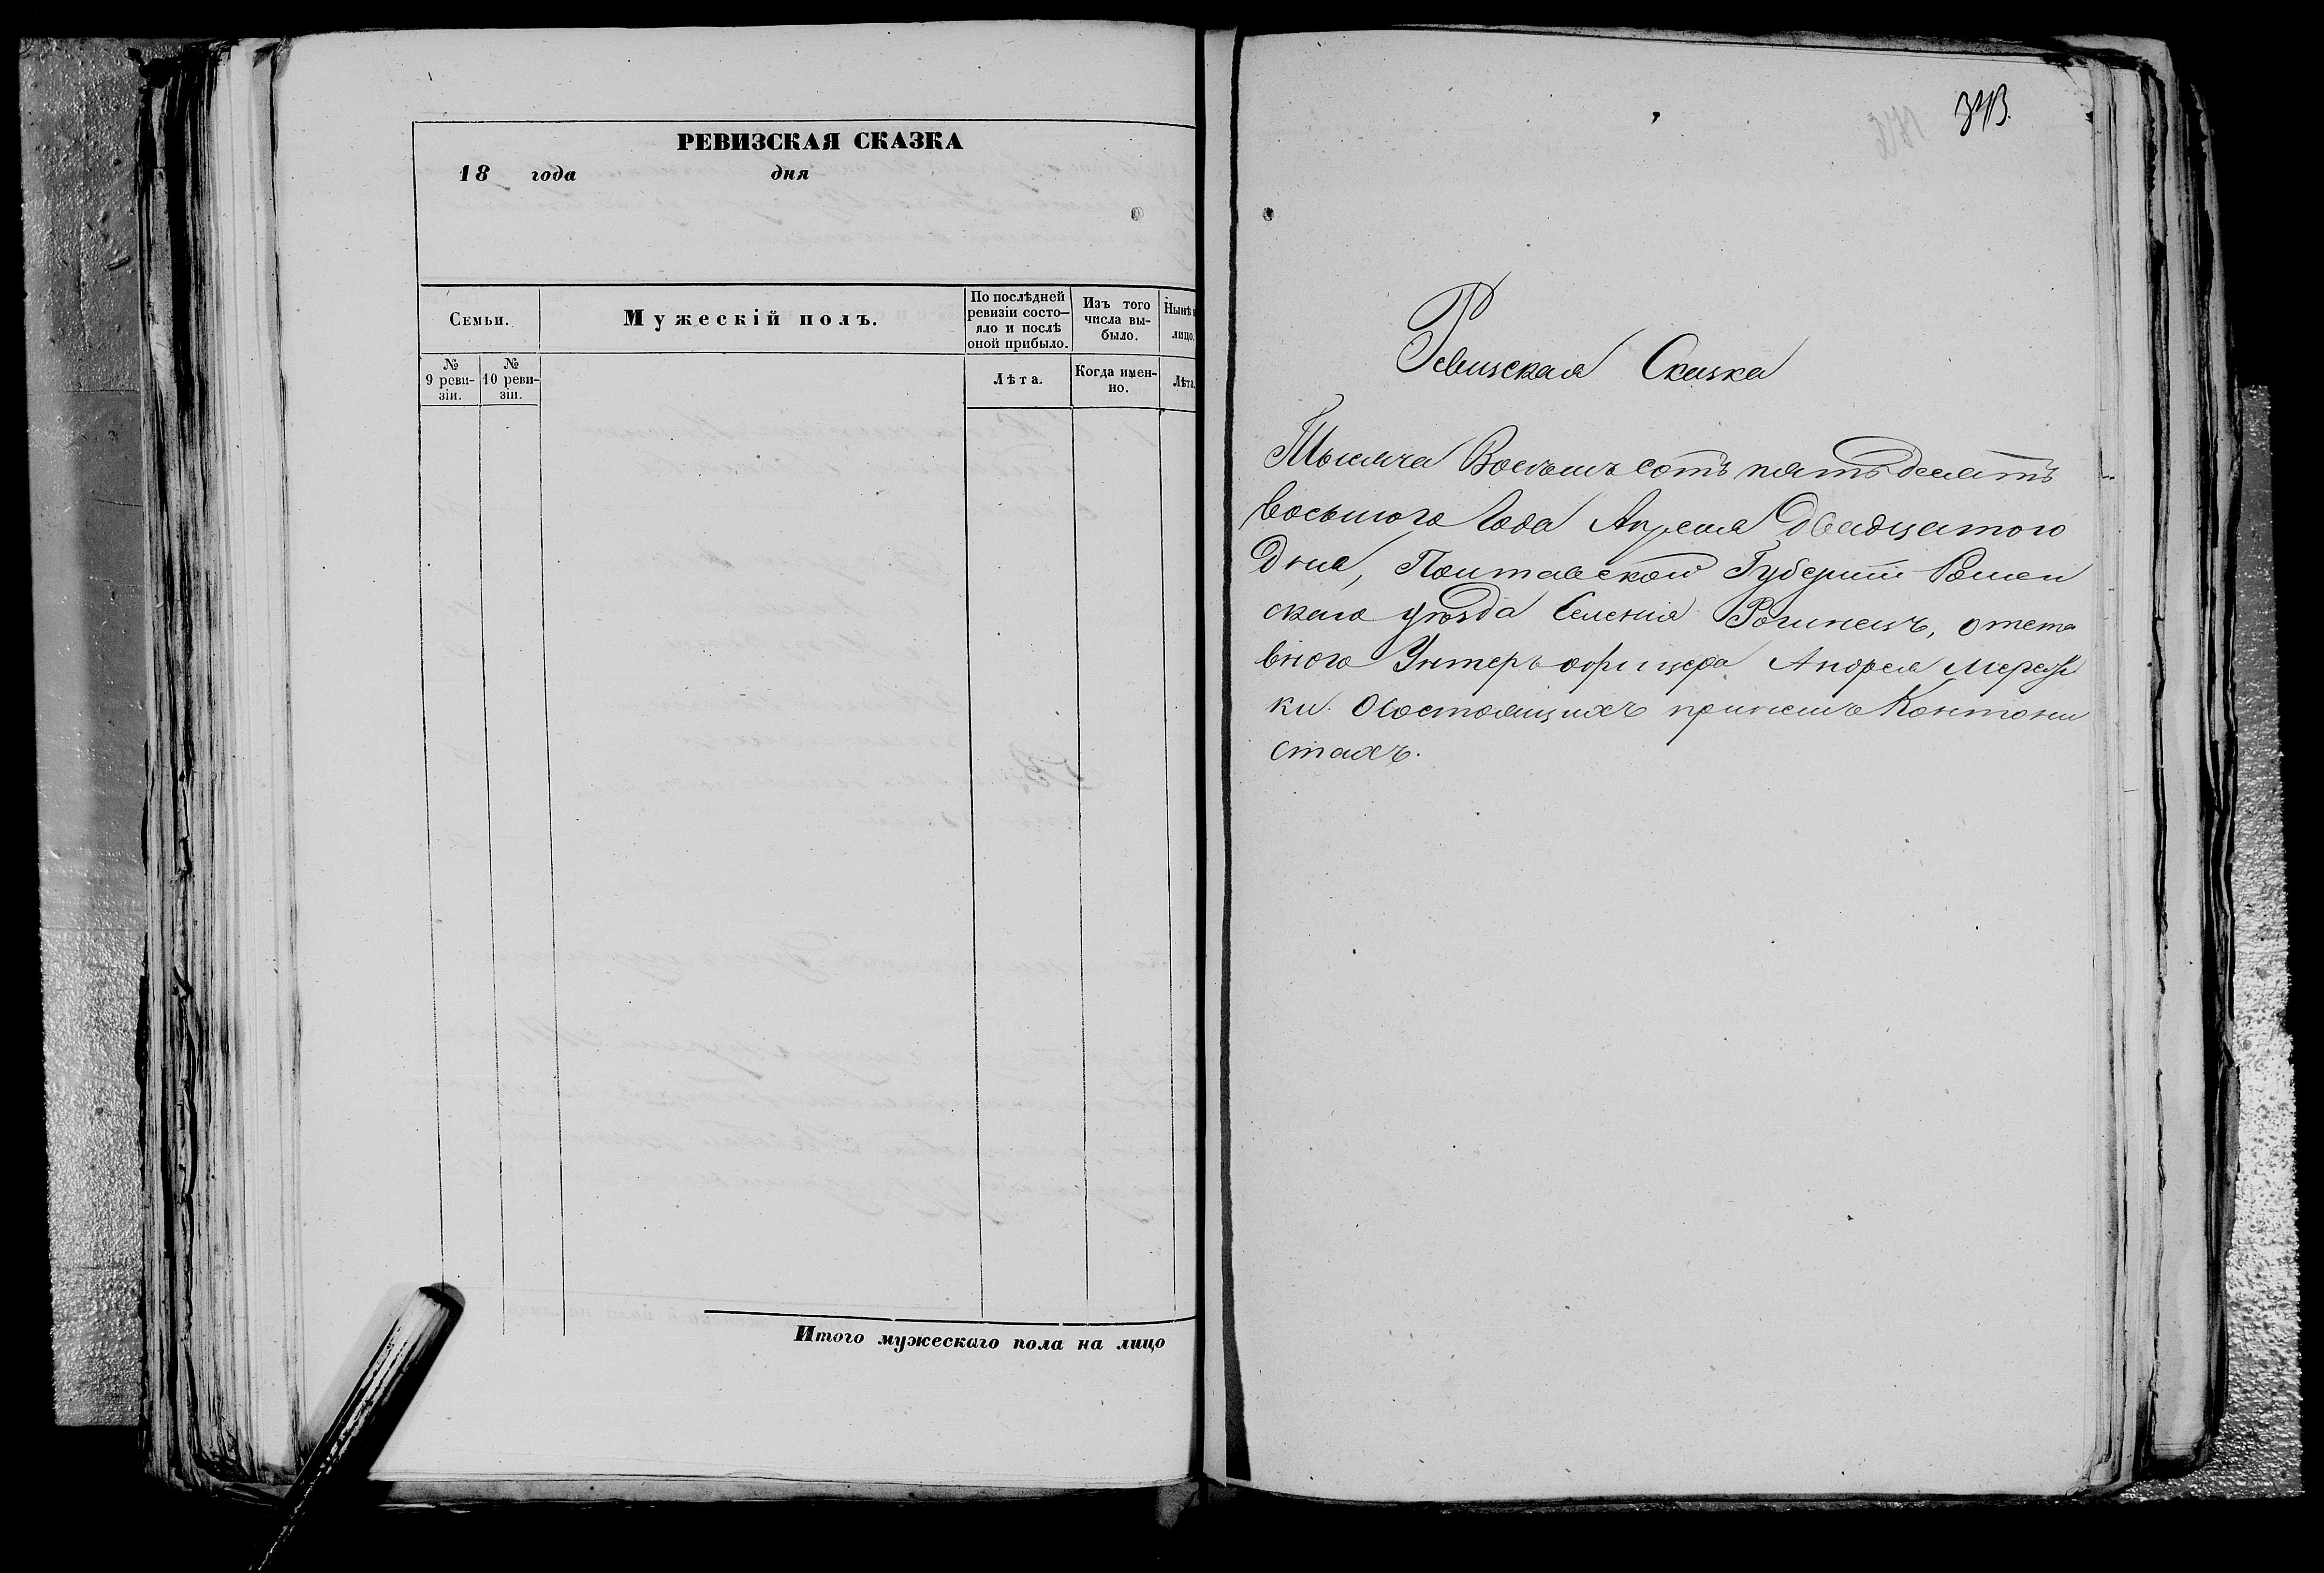 РЕВИЗСКАЯ СКАЗКА
18 года дня
Семьи.
Мужескій полъ.
По послѣдней ревизіи состо-
яло и послѣ
оной прибыло.
Изъ того
числа вы-
было.
Нынѣ н
лицо.
№
9 реви-
зіи.
№
10 реви-
зіи.
Лѣта.
Когда имен-
но.
Лѣта.
Итого мужескаго пола на лицо
343.
Ревизская Сказка
Тысяча Восемь сотъ пятьдесятъ
восьмого Года Апреля двадцатого
Дня, Полтавской Губерніи Ромен
скаго уѣзда Селенія Рогинецъ, отста
вного Унтеръ офицера Андрея
ки. О состоящихъ принемъ Кантони
стахъ.